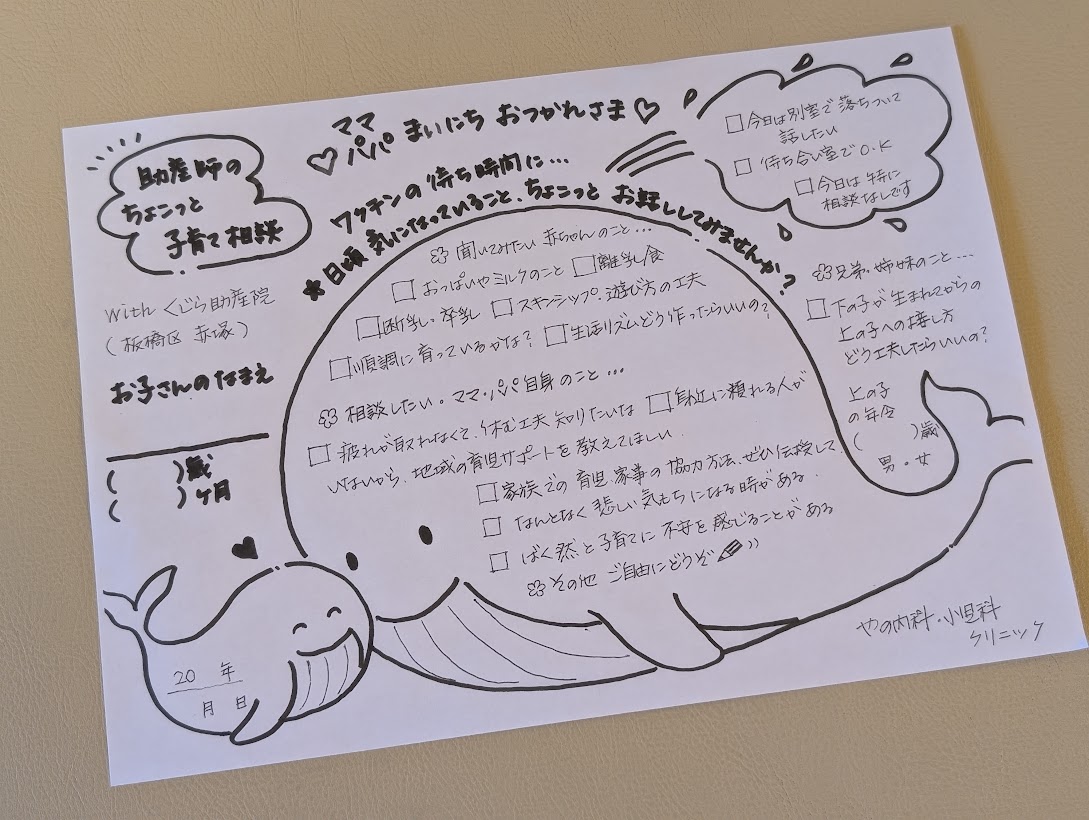 助産師の
ちょこっと
子育て相談
♡ ママ
パパ まいにち おつかれさま♡
ワクチンの待ち時間に…
★日頃気になっていること、ちょこっと お話ししてみませんか?
□今日は別室で落ちついて
話したい
□ 待ち合い室でO.K
□今日は特に
相談なしです
with くじら助産院
(板橋区 赤塚)
お子さんのなまえ
( )歳
( )ヶ月
聞いてみたい 赤ちゃんのこと…
□おっぱいやミルクのこと □離乳食
□断乳・卒乳 □スキンシップ・遊び方の工夫
□順調に育っているかな? □生活リズムどう作ったらいいの?
相談したい・ママ・パパ自身のこと…
□ 疲れが取れなくて、休む工夫知りたいな □身近に頼れる人が
いないから、地域の育児サポートを教えてほしい
□家族での育児、家事の協力方法、ぜひ伝授して
□ なんとなく悲しい気もちになる時がある
□ ばく然と子育てに不安を感じることがある
その他 ご自由にどうぞ
兄弟・姉妹のこと…
□下の子が生まれてからの
上の子への接し方
どう工夫したらいいの?
上の子
の年令
( )歳
男・女
20 年
月 日
やの内科・小児科
クリニック